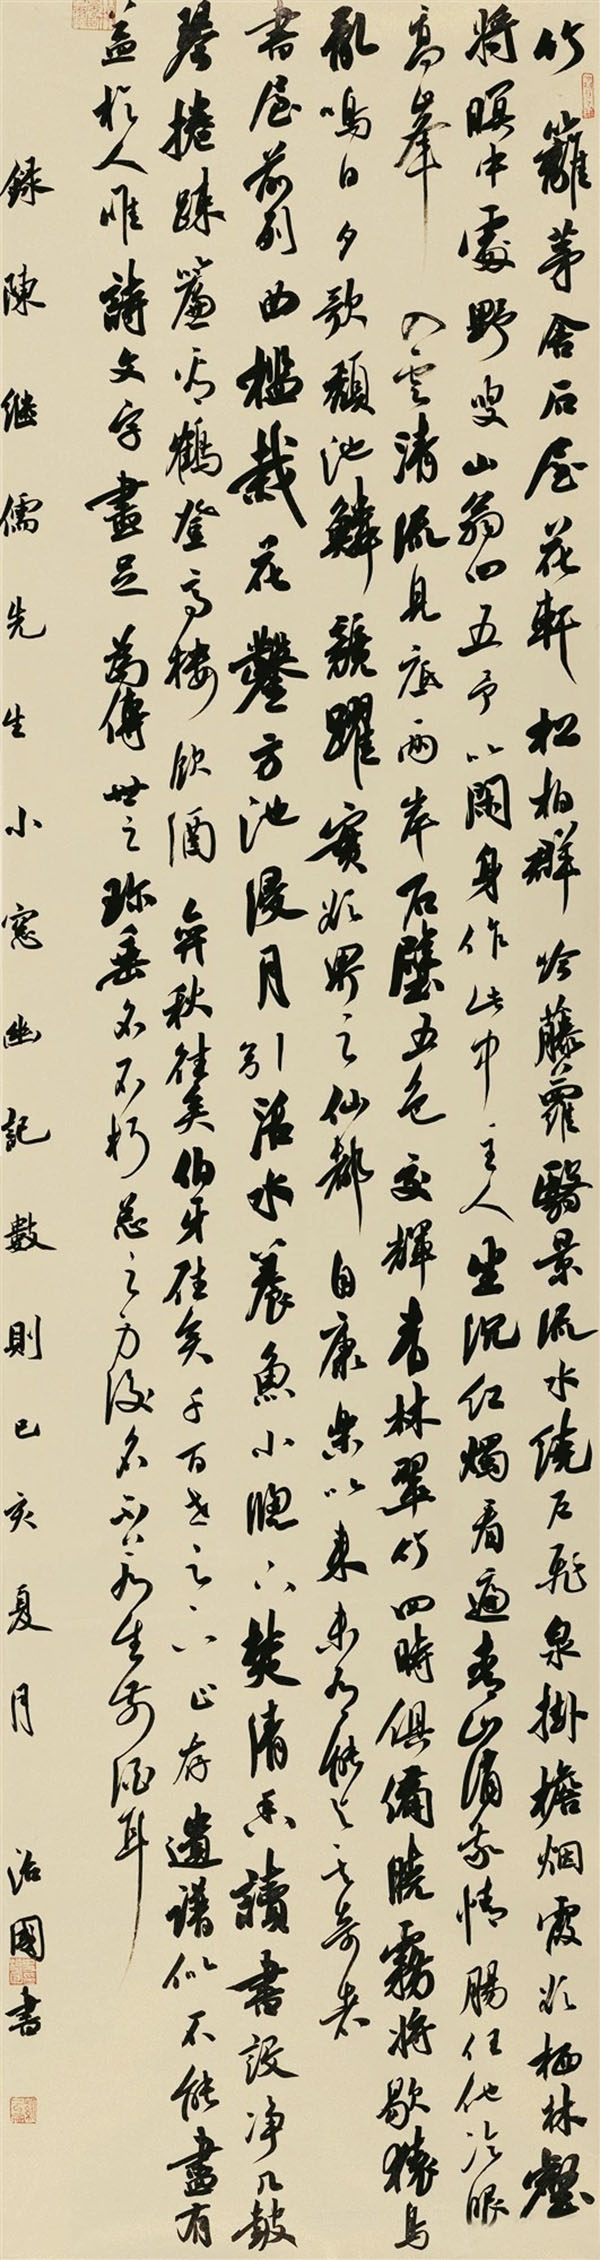 竹籬茅舍石屋花軒松柏群吟藤蘿翳景流水繞戶飛泉掛檐烟霞欲栖林壑
將暝中處野叟山翁四五予以閑身作此中主人坐沉紅燭看遍青山消我情腸任他冷眼
高峯入雲清流見底兩岸石壁五色交輝青林翠竹四時俱備曉霧將歇猿鳥
亂鳴日夕欲頹池鱗競躍實欲界之仙都自康樂以來未有能與其奇者
書屋前列曲檻栽花鑿方池浸月引活水養魚小牕下焚清香讀書設净几鼓
琴捲疎簾看鶴登高樓飲酒弈秋往矣伯牙往矣千百世之下止存遺譜似不能盡有
益於人唯詩文字畫足為傳世之珍垂名不朽總之身後名不若生前酒耳
錄陳繼儒先生小窓幽記數則己亥夏月治國書